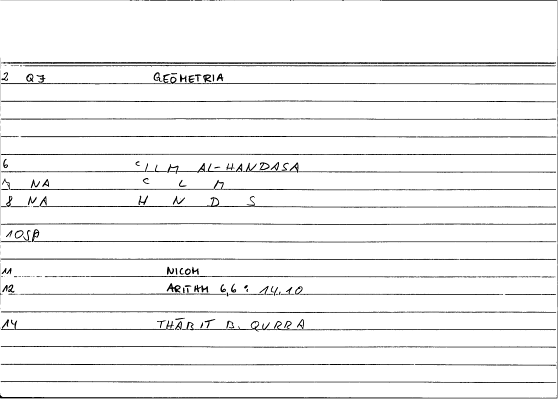 2 Q7 GEŌMETRIA
6 ʿILM AL-HANDASA
7 NA ʿ L M
8 NA H N D S
10 SP
11 NICOM
12 ARITHM 6,6 : 14.10
14 THĀBIT B. QURRA